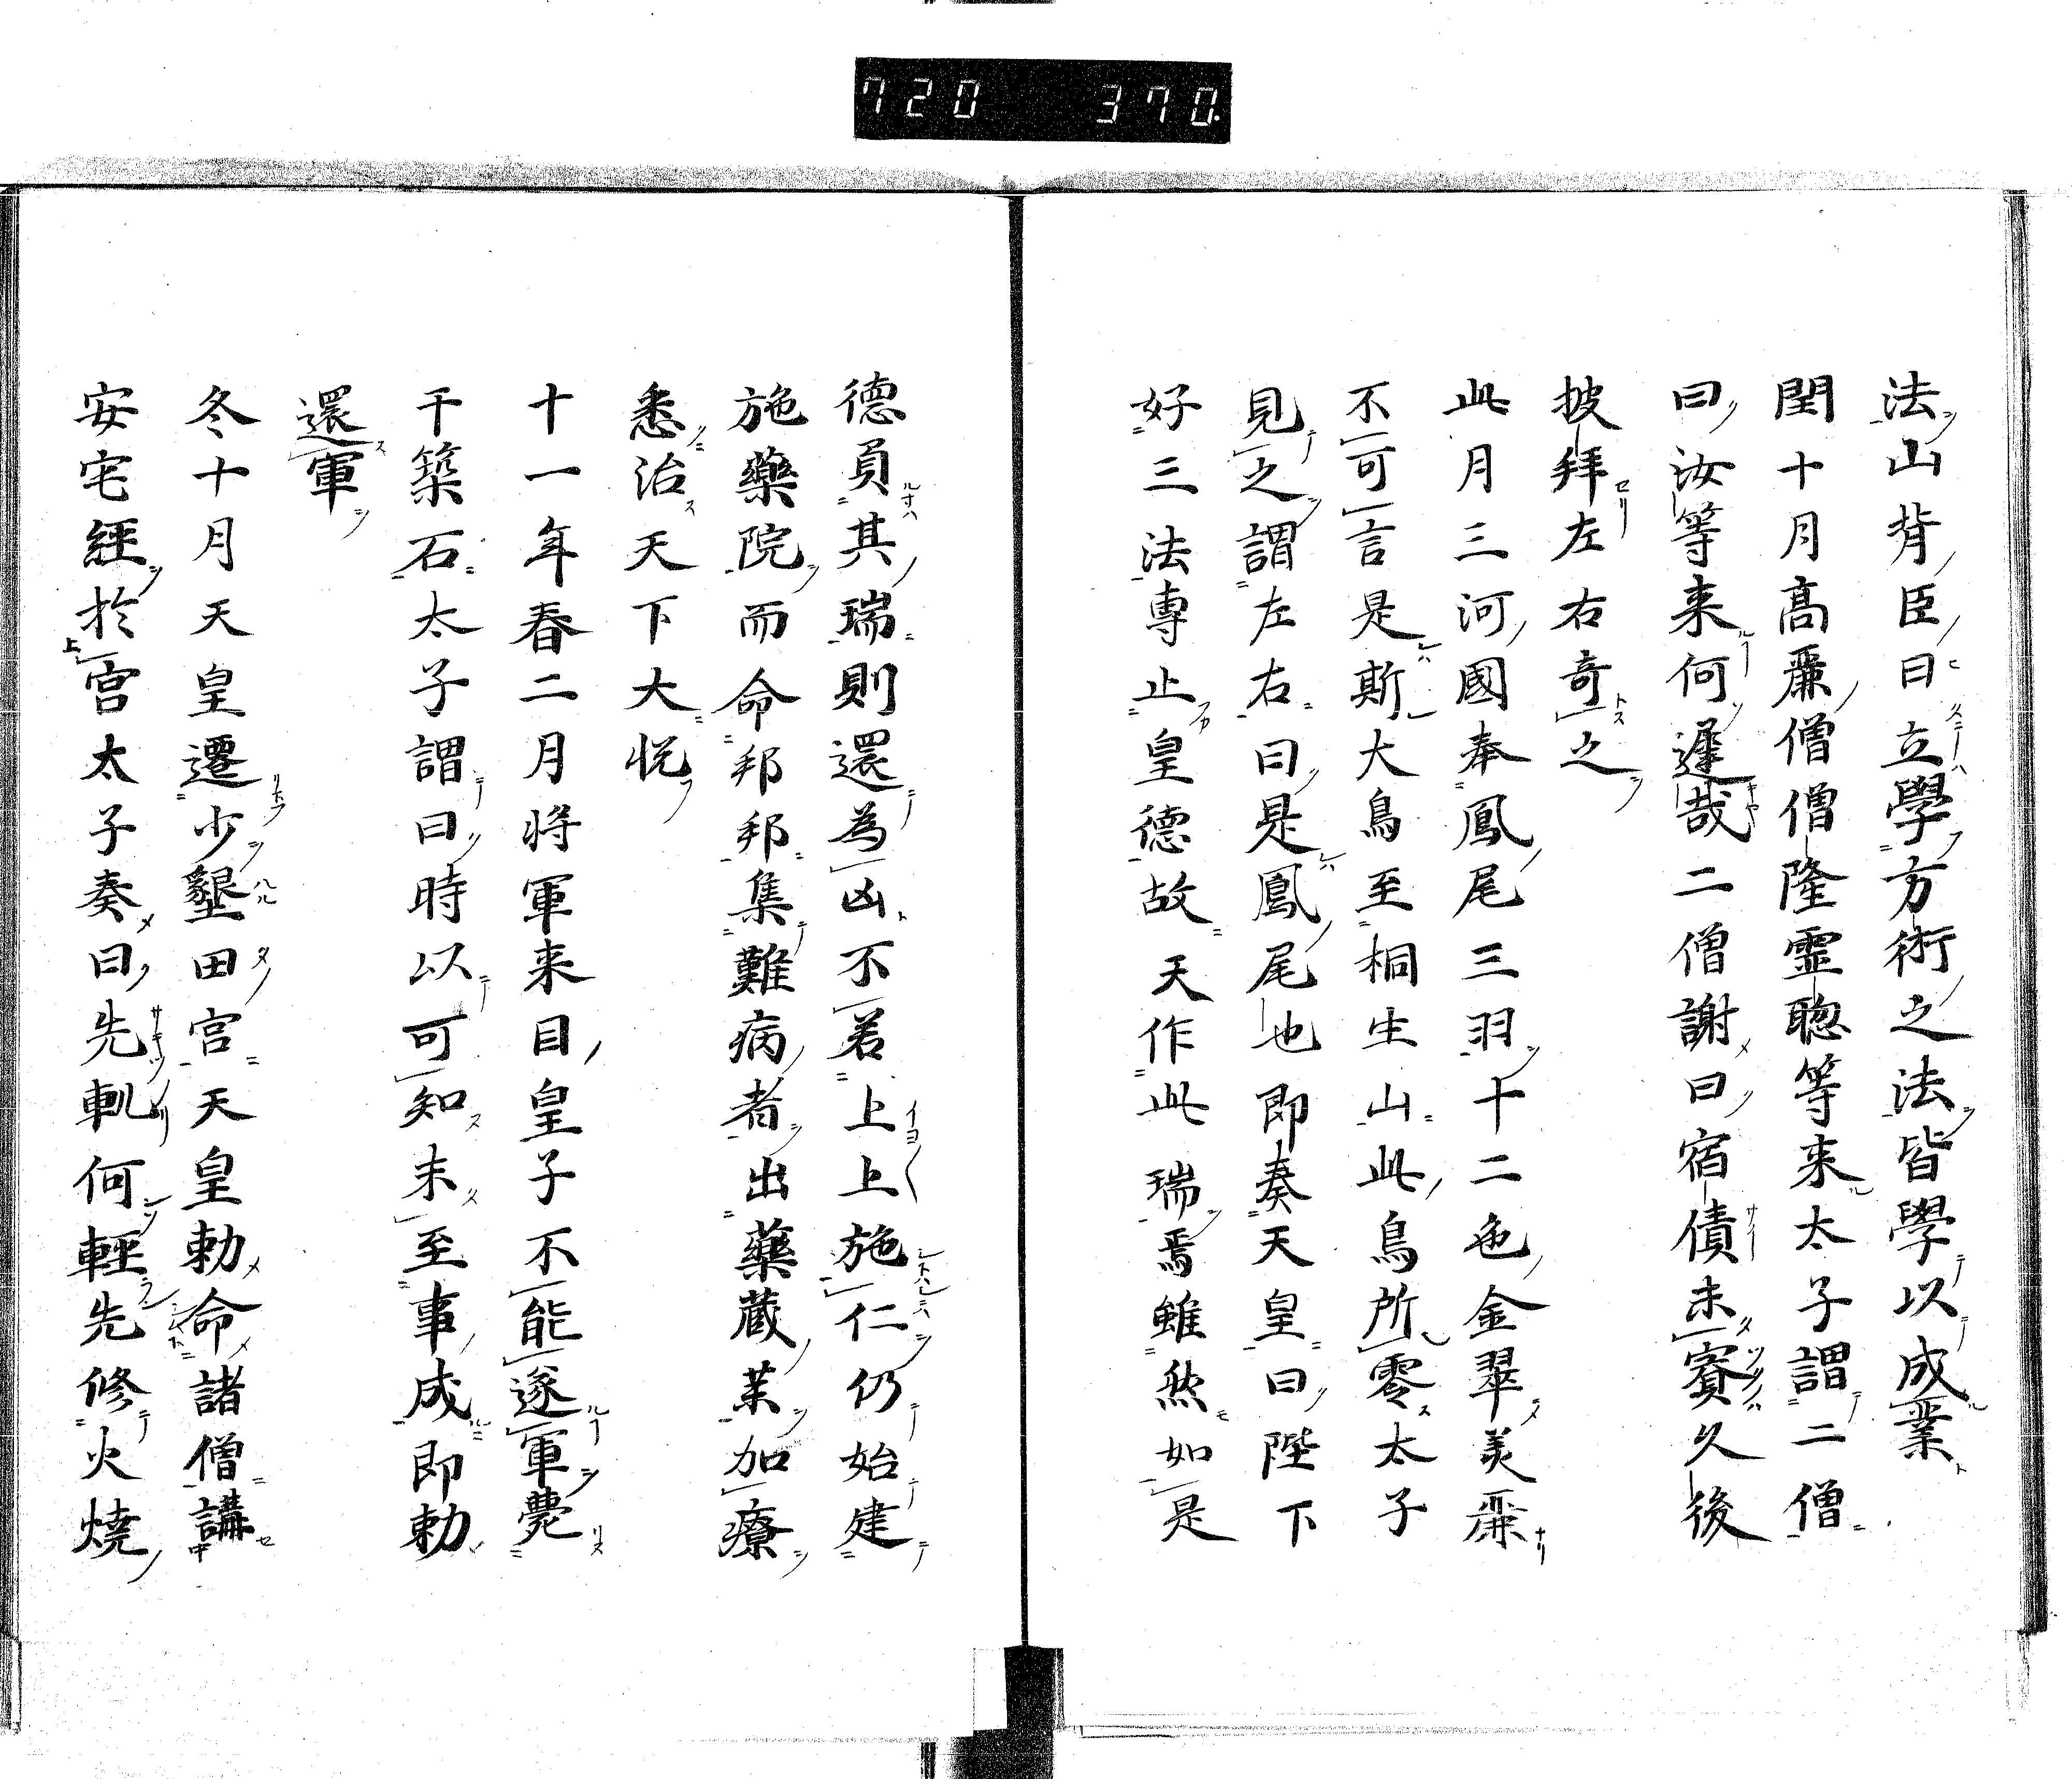 720 370.
法山背臣日立學方術之法皆學以成業
閏十月髙麗僧僧隆霊聡等来太子謂二僧
曰汝等来何遲哉二僧謝曰宿債未賽久後
披拜左右奇之
此月三河國奉鳳尾三羽十二色金翠美麗
不可言是斯大鳥至桐生山此鳥所零太子
見之謂左右曰是鳳尾也即奏天皇曰陛下
好三法專止皇德故天作此瑞焉雖然如是
德負其瑞則還為凶不若上上施仁仍始建
施藥院而命邦邦集難病者出藥蔵葉加療
悉治天下大悦
十一年春二月将軍来目皇子不能遂軍薨
干築石太子謂曰時以可知未至事成即勅
還軍
冬十月天皇遷少墾田宮天皇勅命諸僧講
安宅經於宮太子奏曰先軌何輕先修火燒